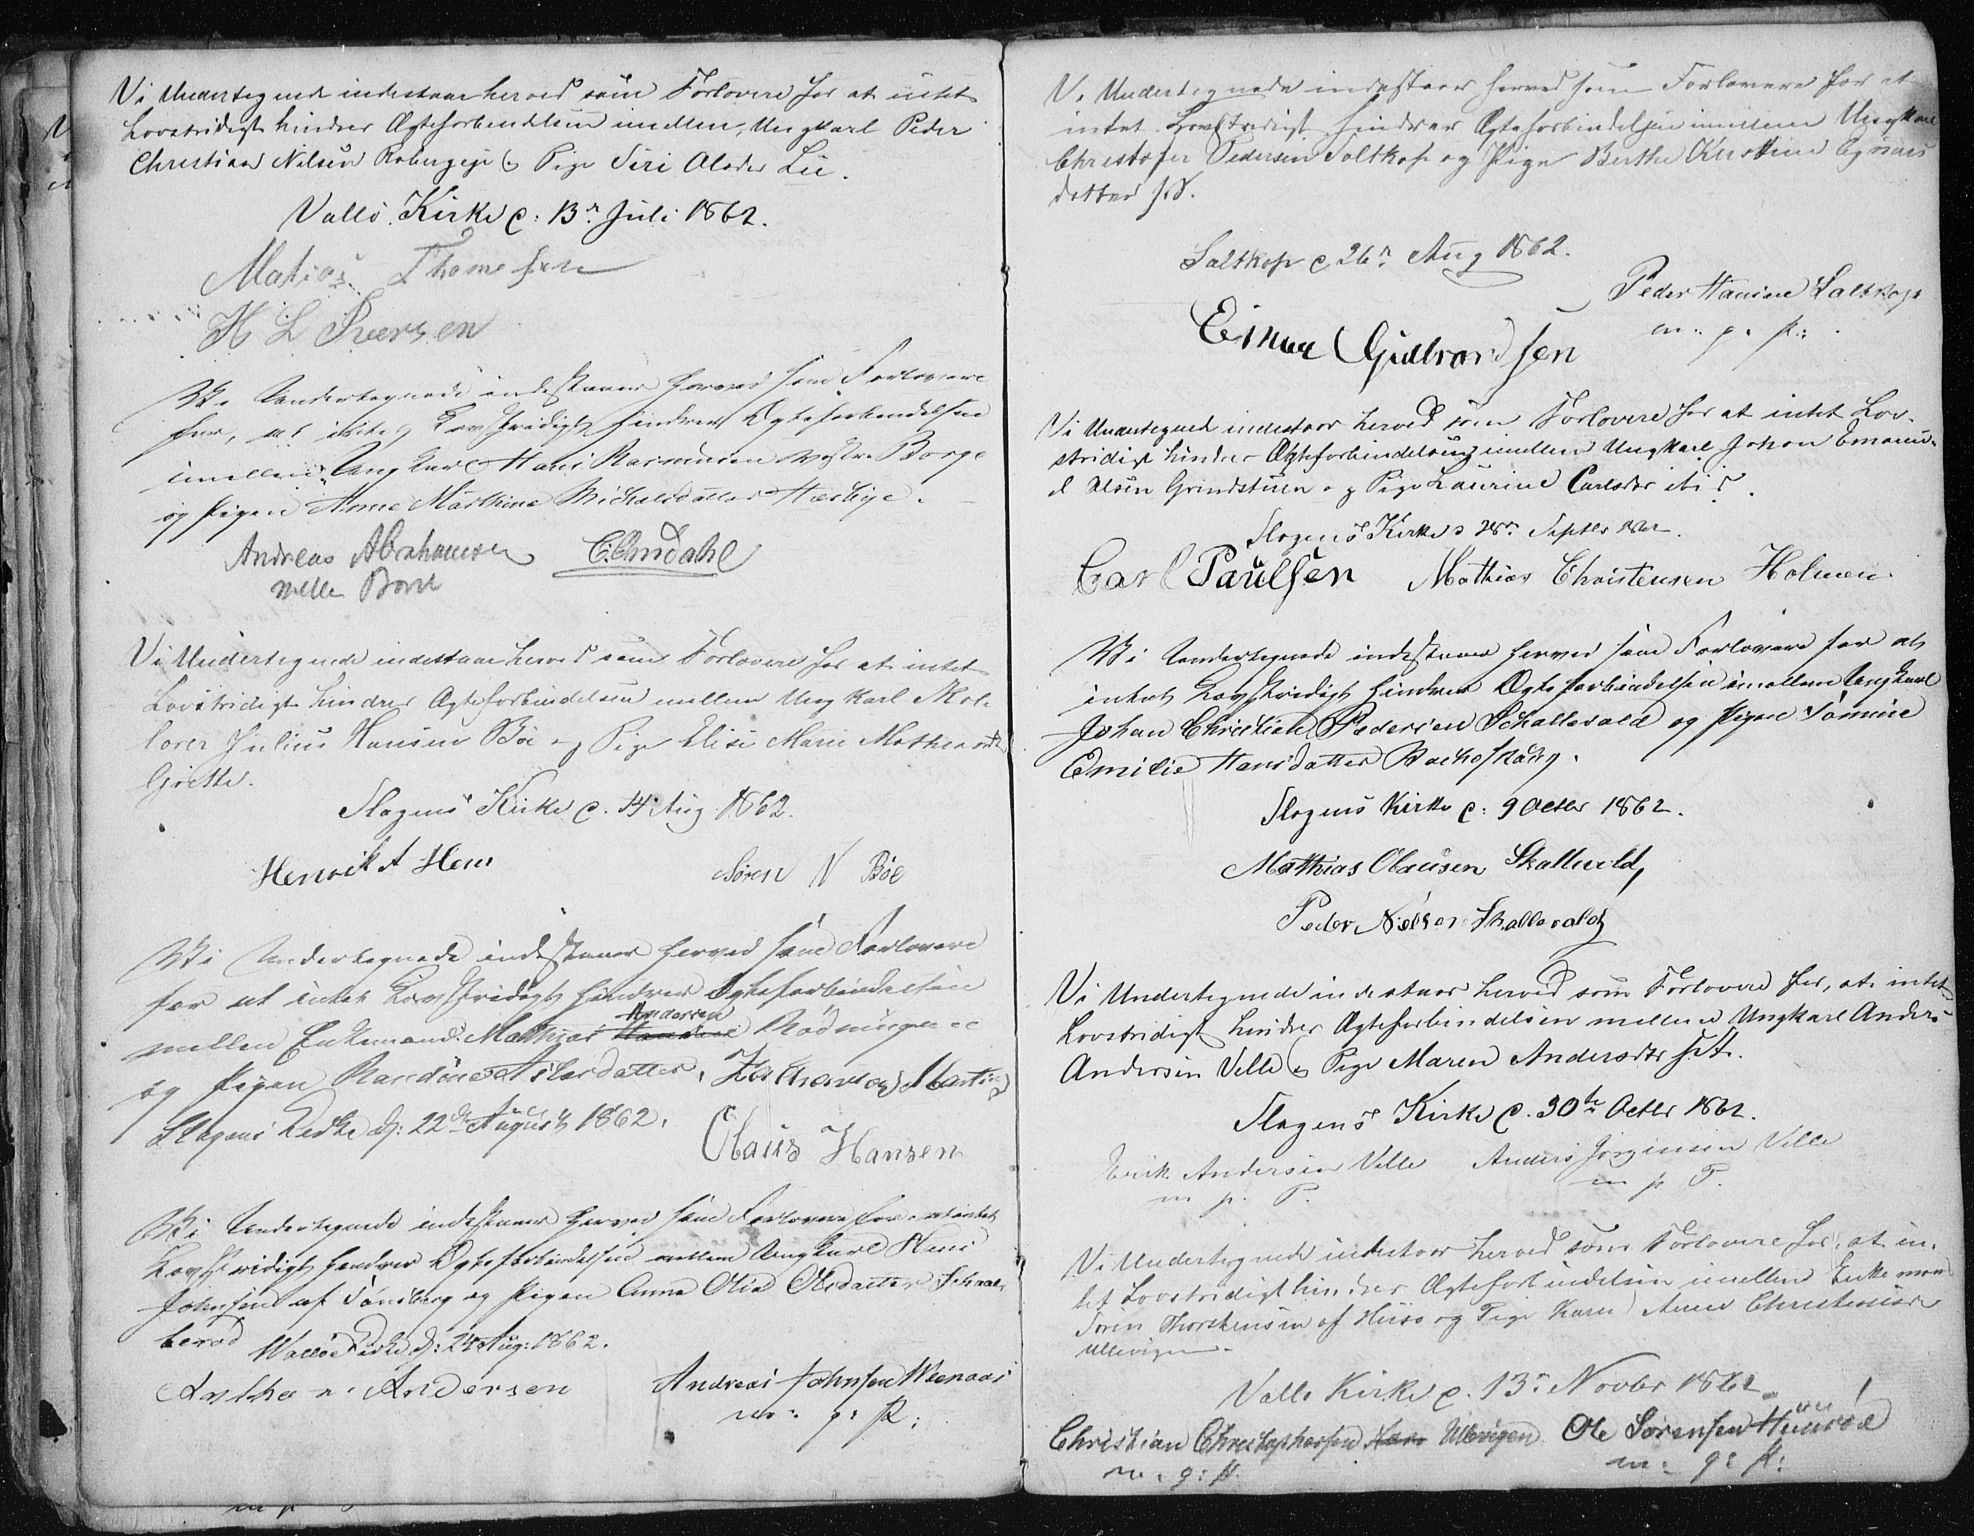 Vi Undertegnede indestaar herved som Forlovere for at intet
Lovstridigt hindrer Ægteforbindelsen imellem Ungkarl Peder
Christian Nilsen Robergeje & Pige Siri Olsdr Lie.
Vallø Kirke d. 13de Juli 1862.
Matias Thomesen
H L Iversen
Vi Undertegnede indestaaer herved som Forlovere
for, at intet Lovstridigt hindrer Ægteforbindelsen
imellem Ungkarl Hans Rasmusen Borge
og Pigen Anne Marthine Michelsdatter
Andreas Abrahamsen C. Omdahl
melle Borre
Vi Undertegnede indestaar herved som Forlovere for at intet
Lovstridigt hindrer Ægteforbindelsen mellem Ungkarl Mat-
Julius Hansen Bøe og Pige Elise Marie Mathiasdtr
Grette.
Slagens Kirke d. 14 Aug. 1862.
Henrik A Hem Søren N Bøe
Vi Undertegnede indestaaer herved som Forlovere
for at intet Lovstridigt hindrer Ægteforbindelsen
Andersen
mellem Enkemand Mathias Rødningen
og Pigen Randine Aslesdatter.
Slagens Kirke d: 22de August 1862.
Olaus Hansen
Vi Undertegnede indestaaer herved som Forlovere for at intet
Lovstridigt hindrer Ægteforbindelsen mellem Ungkarl Hans
Johnsen af Tønsberg og Pigen Anna Olia Olsdatter
berød Walløe Kirke d: 24 Aug: 1862.
Andersen Andreas Johnsen
m: p: P:
Vi Undertegnede indestaar herved som Forlovere for at
intet Lovstridigt hindrer Ægteforbindelsen imellem Ungkarl
Christofer Pedersen Saltkop og Pige Berthe Kirstine
datter s.S.
Saltkop d 26de Aug 1862.
Peder Hansen Saltkop
m: p: P:
Einar Gulbrandsen
Vi Undertegnede indestaar herved som Forlovere for at intet Lov-
stridigt hinder Ægteforbindelsen imellem Ungkarl Johan Emanu-
el Olsen Grindstuen og Pige Laurine Carlsdtr
Slagens Kirke d 28de Septbr 1862.
Carl Paulsen Mathias Christensen Holmen
Vi Undertegnede indestaaer herved som Forlovere for at
intet Lovstridigt hindrer Ægteforbindelsen imellem Ungkarl
Johan Christian Pedersen Schallevold og Pigen
Emilie Hansdatter
Slagens Kirke d: 9 Octbr 1862.
Mathias Olausen Skallevold,
Peder Nielsen Skallevold
Vi Undertegnede indestaar herved som Forlovere for, at intet
Lovstridigt hindrer Ægteforbindelsen mellem Ungkarl Anders
Andersen Velle & Pige Maren Andersdtr
Slagens Kirke d. 30te Octbr 1862.
Erik Andersen Velle Anders Jørgensen Velle
m p. P. m p P.
Vi Undertegnede indestaar herved som Forlovere for, at in-
tet Lovstridigt hindrer Ægteforbindelsen imellem Enkemand
Søren Thorstensen af Huso og Pige Karen Anne
Ullevigen.
Vallø Kirke d. 13de Novbr 1862
Christian Christophersen Ullevigen Ole Sørensen
m: p: P: m: p: P: